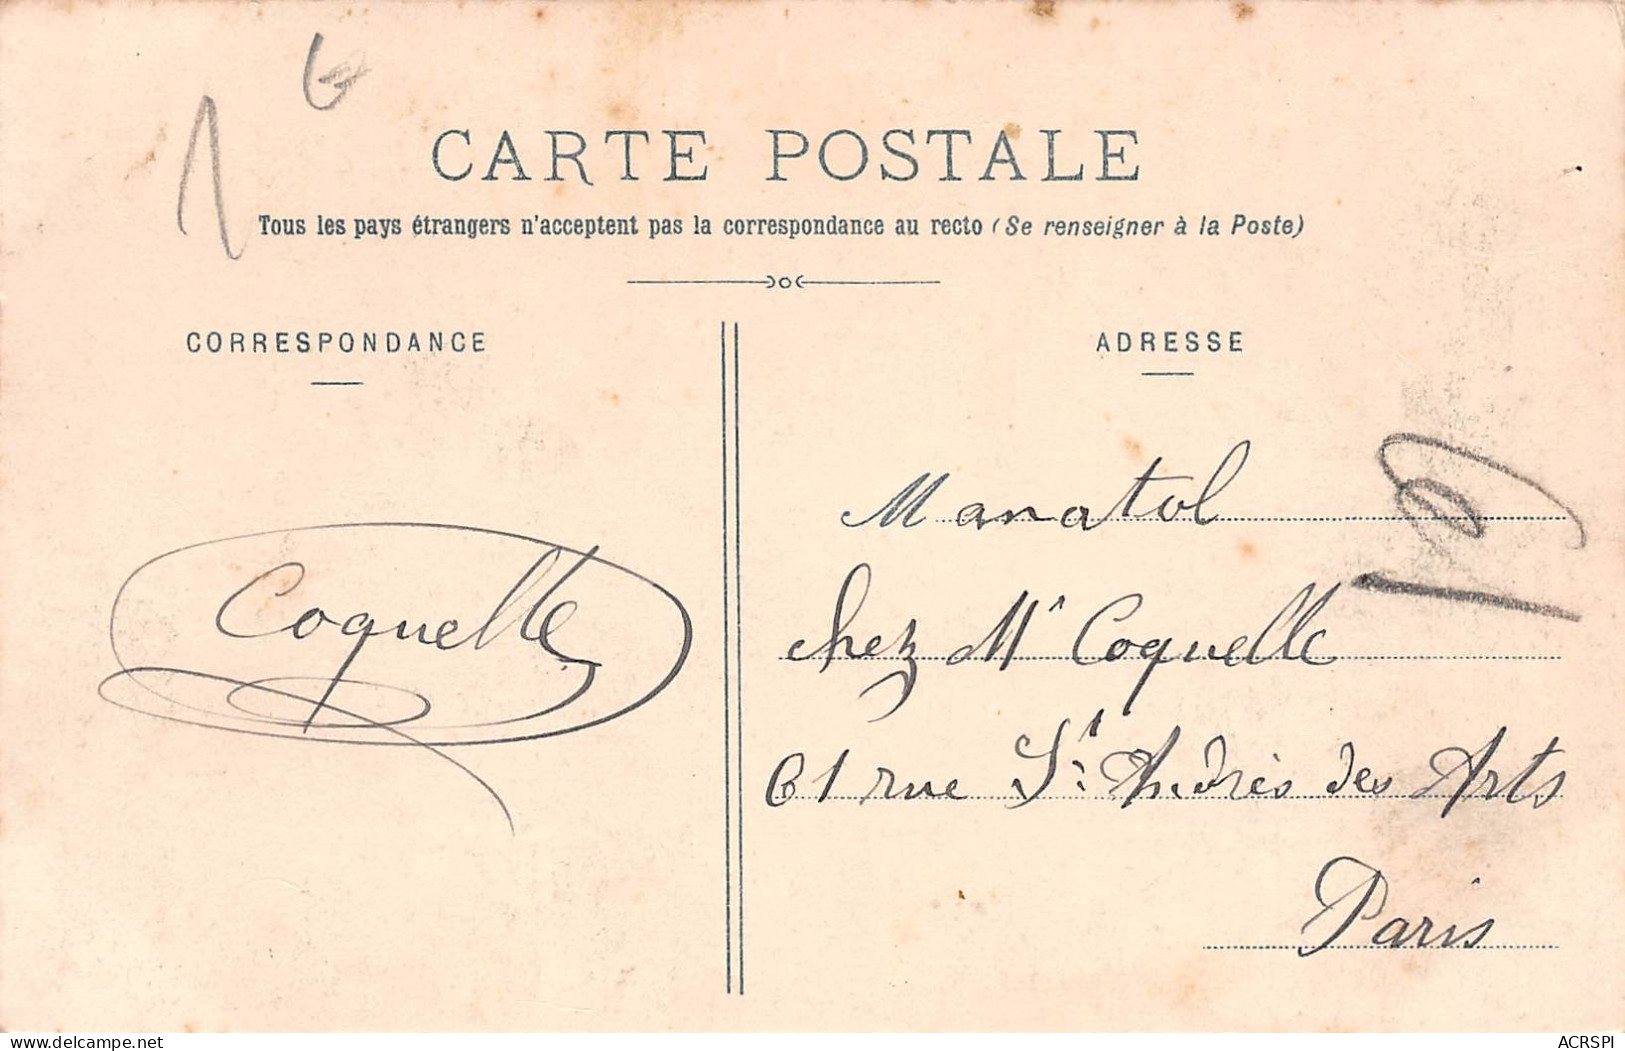 CARTE POSTALE
Tous les pays étrangers n'acceptent pas la correspondance au recto (Se renseigner à la Poste)
CORRESPONDANCE
Coquelle
ADRESSE
Manatol
chez Mr Coquelle
61 rue St. Andrès des Arts
Paris
delcampe.net
ACRSPI